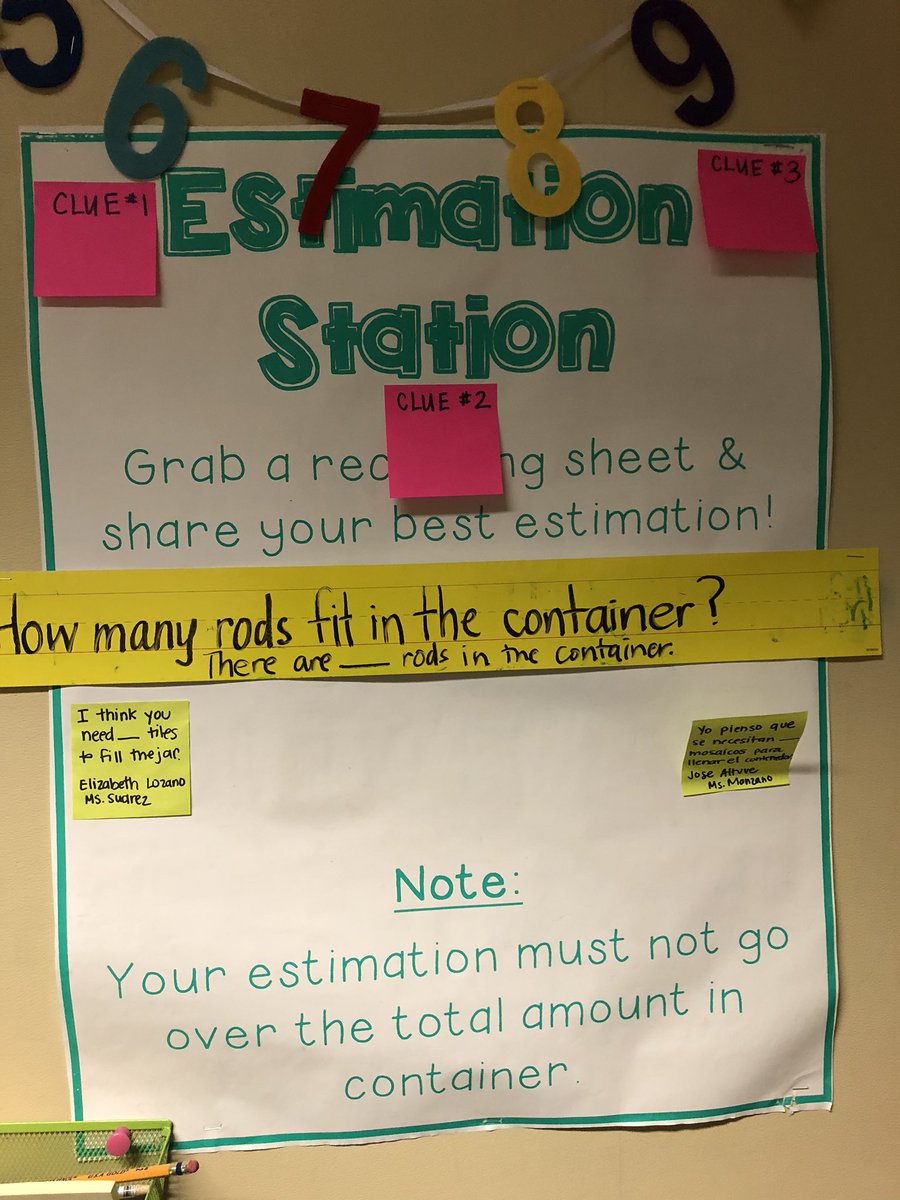 5 6 7 8 9
CLUE #1
CLUE #3
Estimation
Station
CLUE #2
Grab a rec ng sheet &
share your best estimation!
How many rods fit in the container?
There are ___ rods in the container.
I think you
need __ tiles
to fill the jar.
Elizabeth Lozano
Ms. Suarez
Yo pienso que
se necesitan ___
mosaicos para
llenar el contenedor
Jose Altuve
Ms. Manzano
Note:
Your estimation must not go
over the total amount in
container.